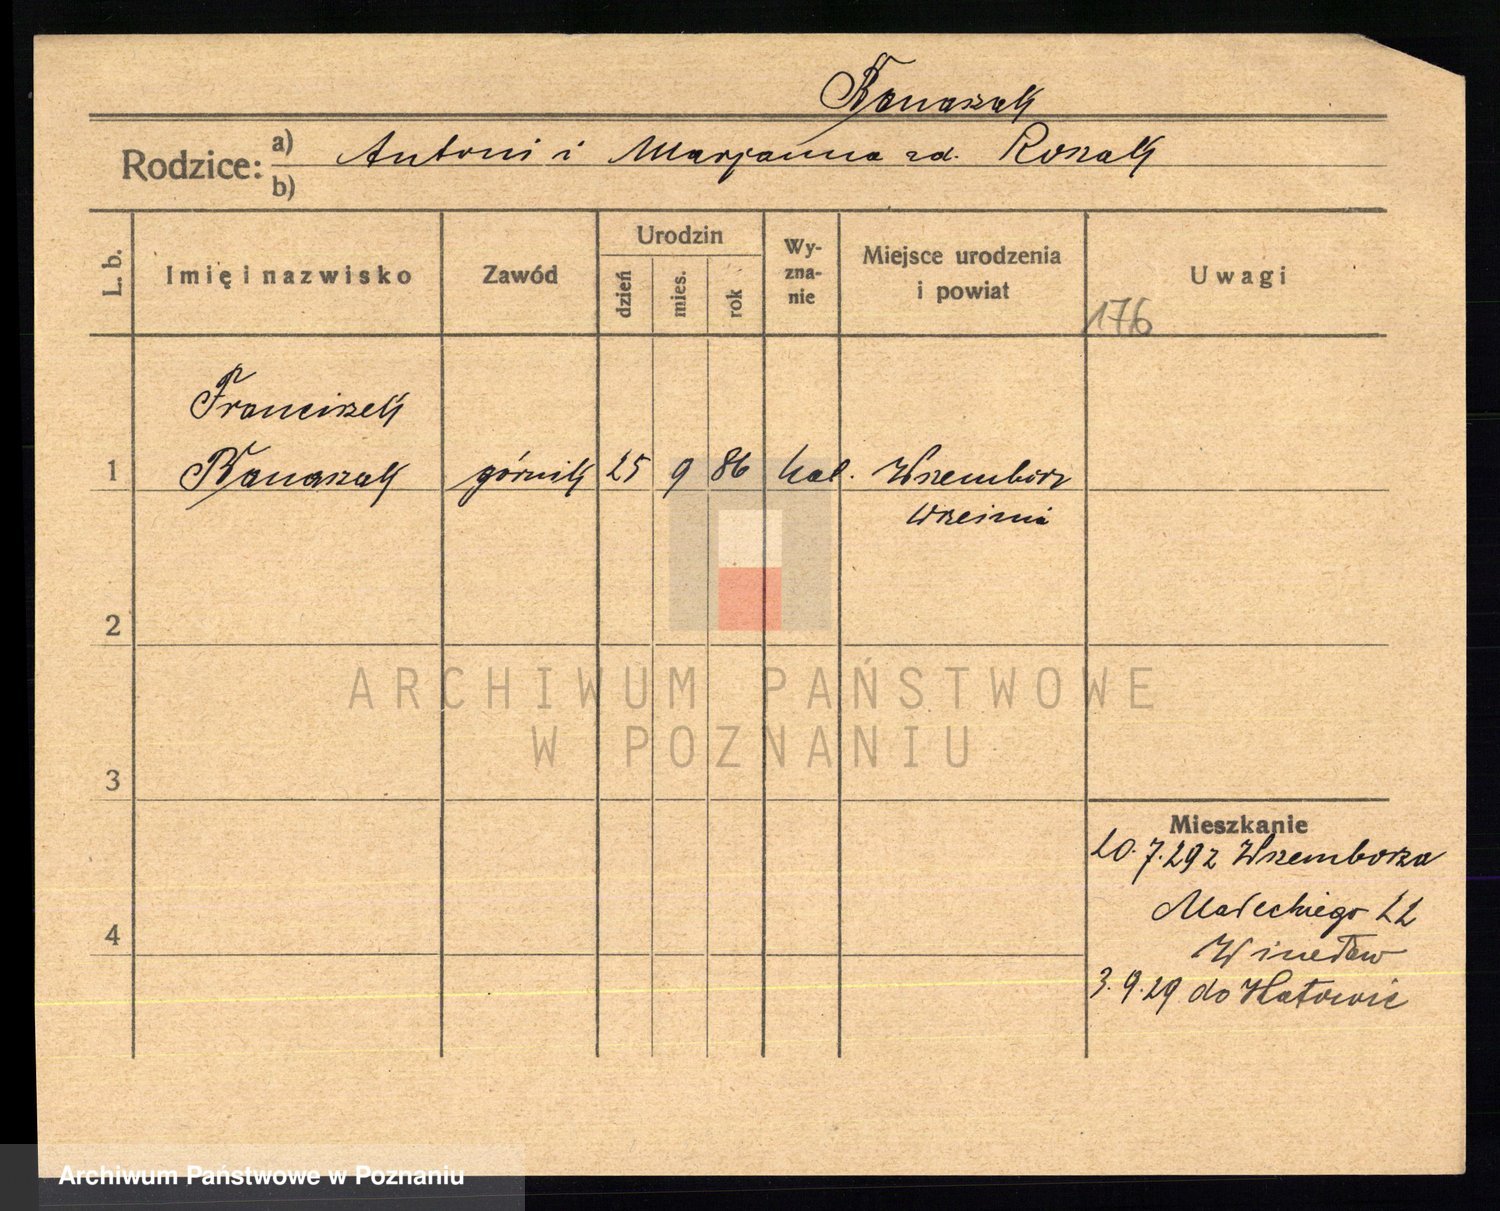 Banaszak
Rodzice: a) Antoni i Marjanna zd. Rozak
b)
L. b.
Imię i nazwisko
Zawód
Urodzin
dzień
mies.
rok
Wy-
zna-
nie
Miejsce urodzenia
i powiat
Uwagi
176
Franciszek
1 Banaszak górnik 25 9 86 kat. Wszembórz
Września
2
3
4
Mieszkanie
20.7.29 z Wszemborza
Małeckiego 22
3.9.29 do Katowic
ARCHIWUM PAŃSTWOWE
W POZNANIU
Archiwum Państwowe w Poznaniu